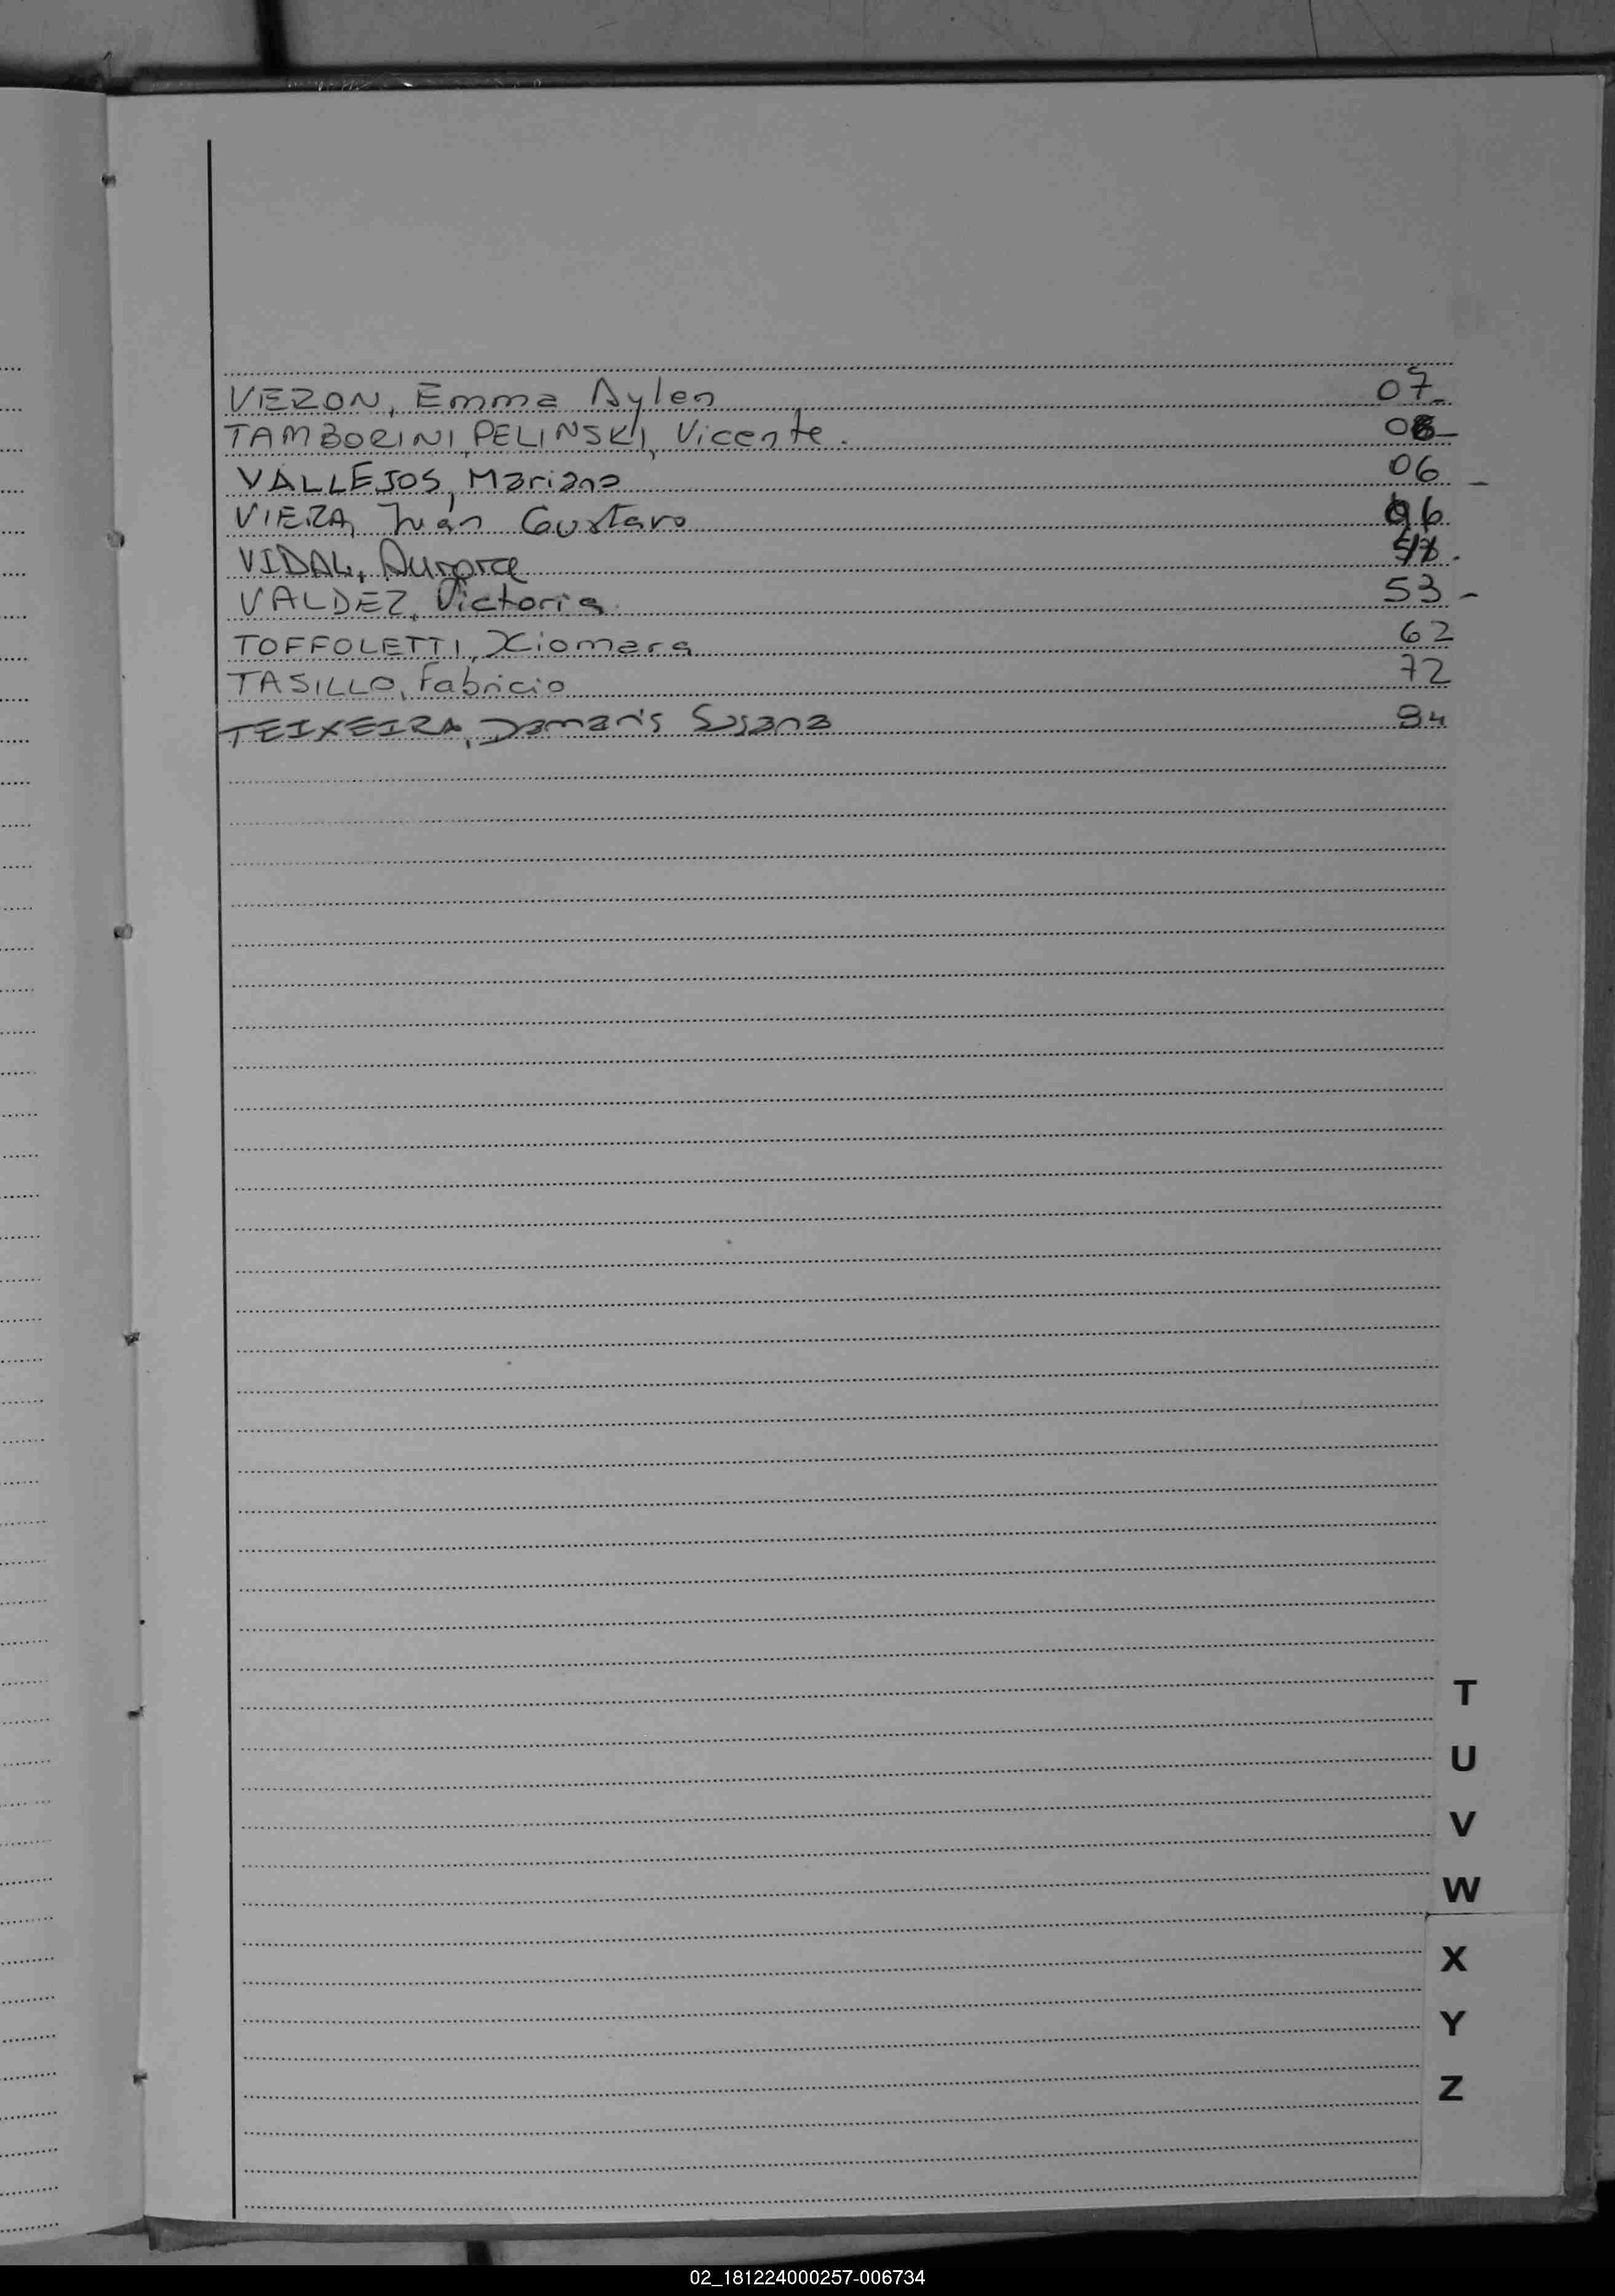 VERON, Emma Aylen 07
TAMBORINI PELINSKI, Vicente. 08
VALLEJOS, Mariano 06
VIERA, Iván Gustavo 96
VIDAL, Aurora
VALDEZ, Victoria 53
TOFFOLETTI, Xiomara 62
TASILLO, Fabricio 72
TEIXEIRA, Damaris Susana 94
T
U
V
W
X
Y
Z
02_181224000257-006734